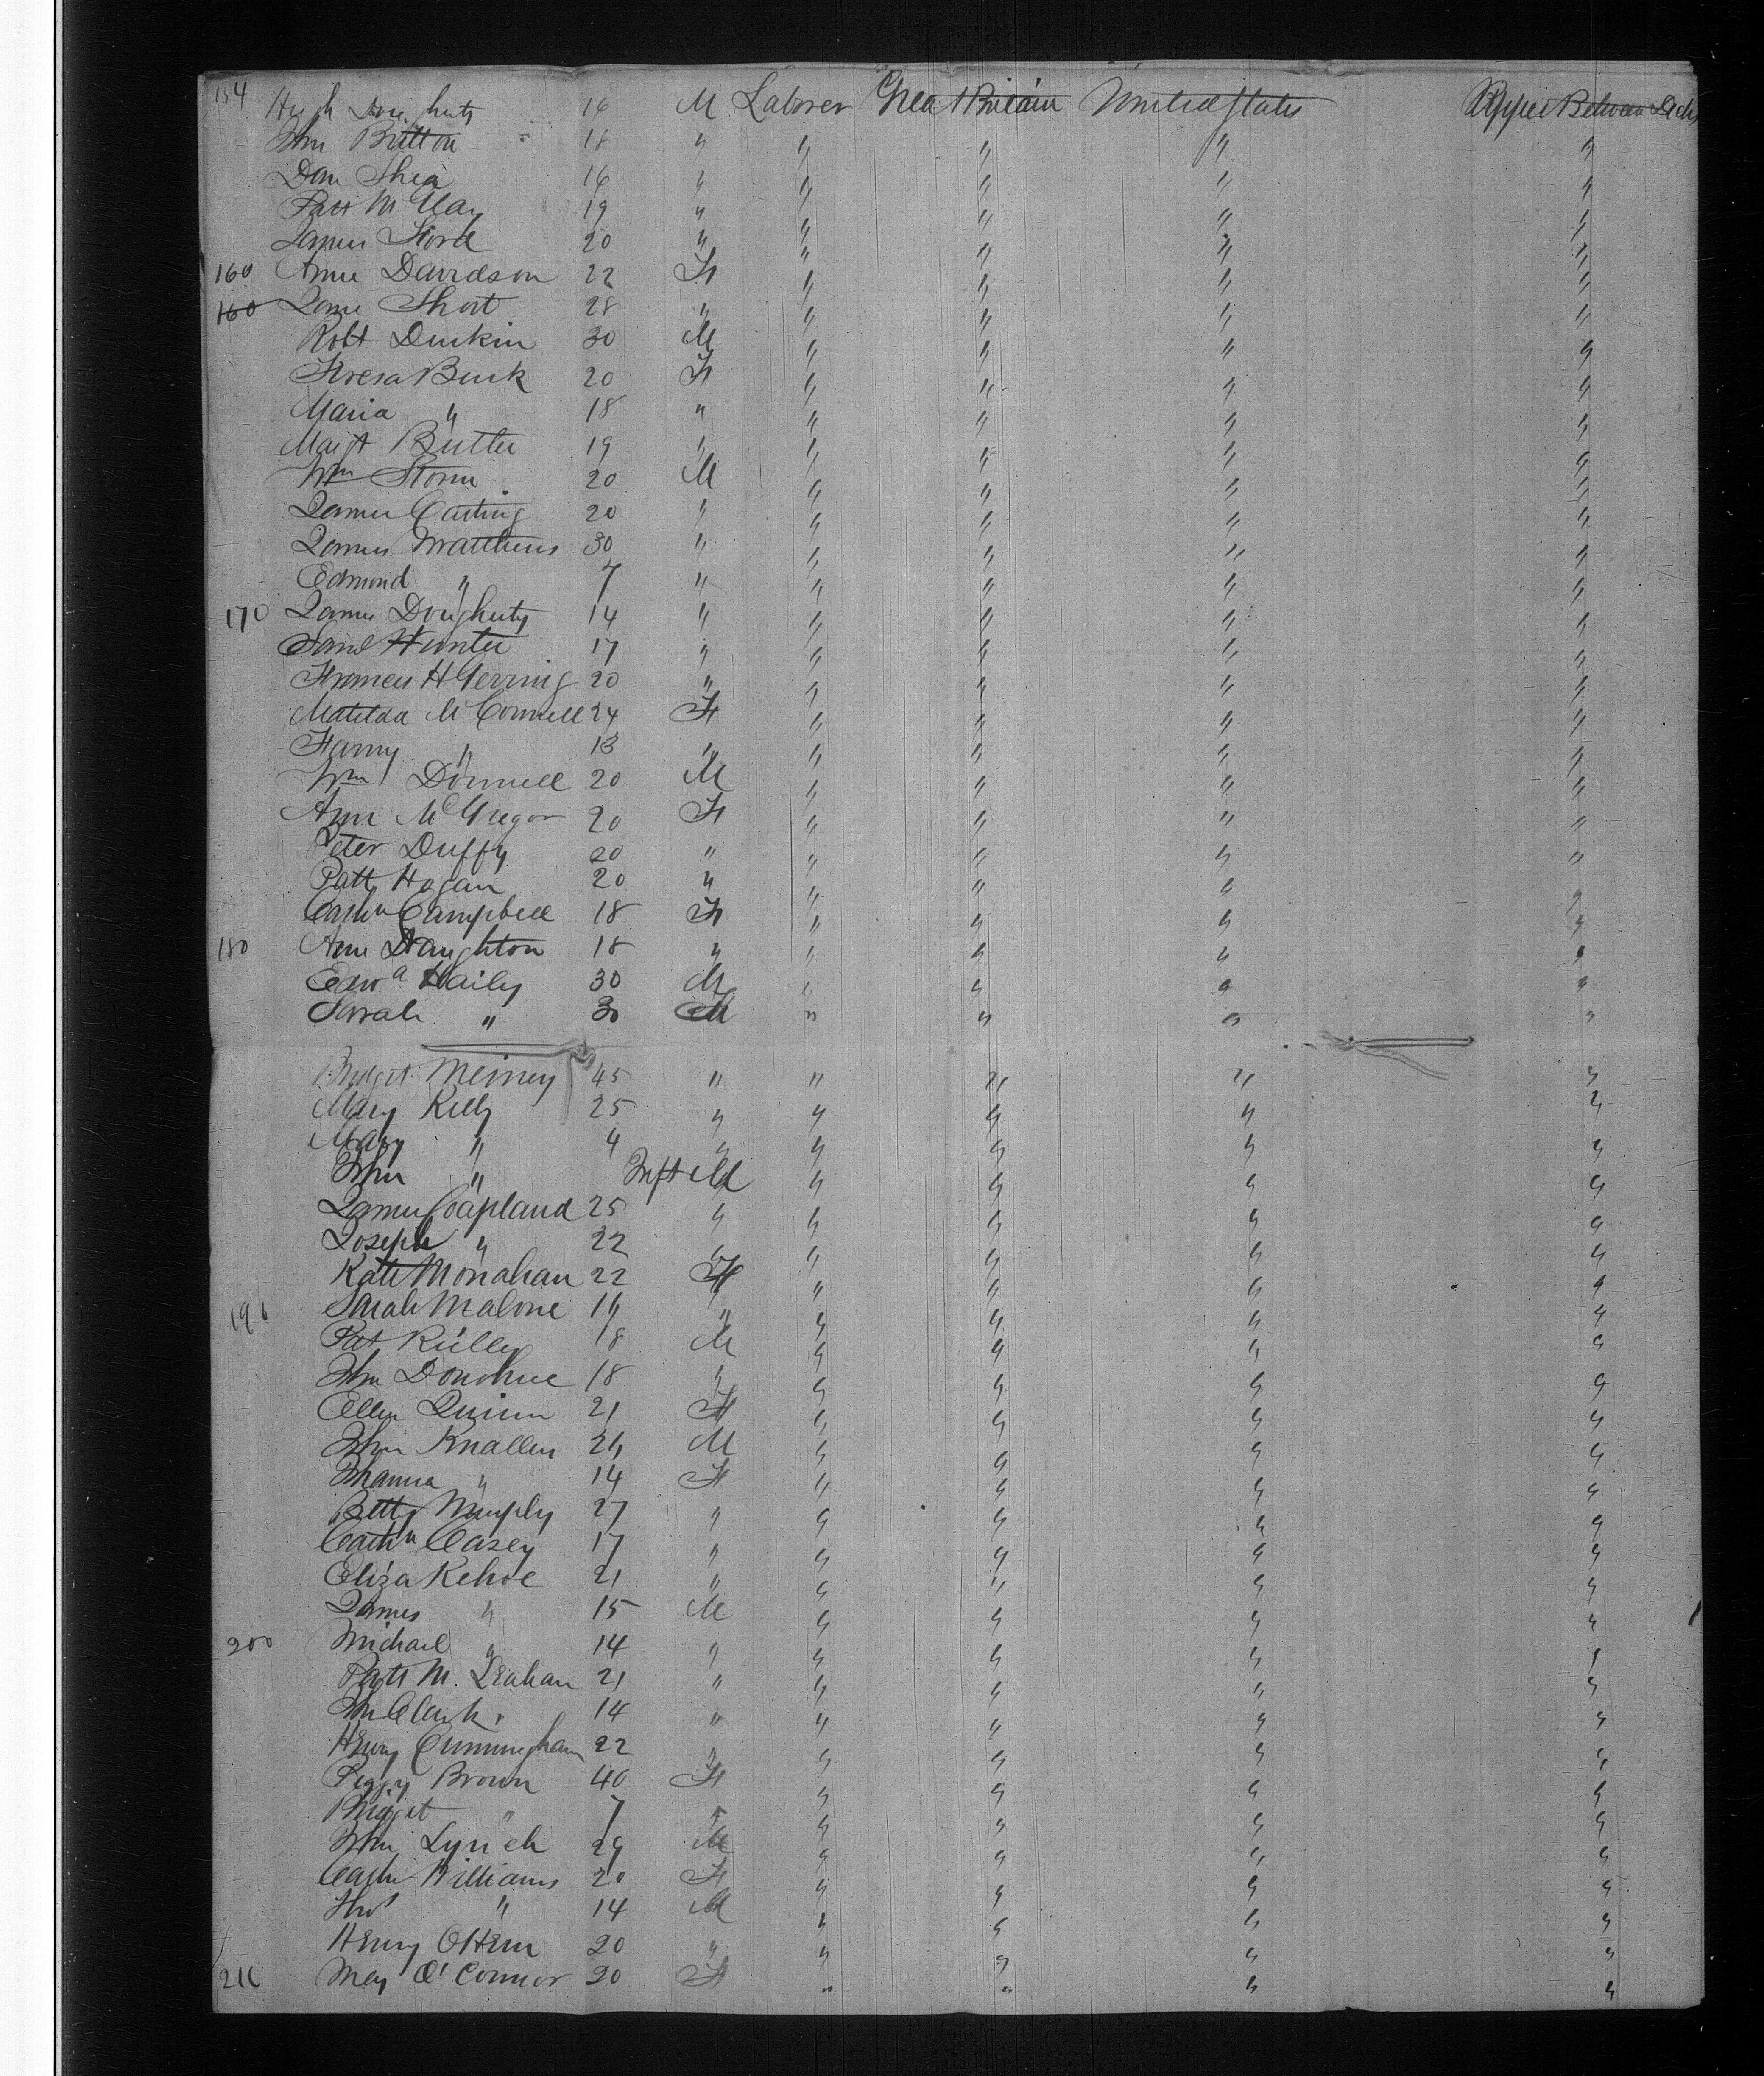 154 Hugh Dougherty 16 M Laborer Great Britain United States Upper Between Decks
Jhn Britton 18 " " " " "
Dan Shea 16 " " " " "
Patt McClay 19 " " " " "
James Ford 20 " " " " "
160 Anne Davidson 22 F " " " "
160 Jane Short 28 " " " " "
Robt Durkin 30 M " " " "
Teresa Burk 20 F " " " "
Maria " 18 " " " " "
Margt Butler 19 " " " " "
Wm Storm 20 M " " " "
James Carting 20 " " " " "
James Matthews 30 " " " " "
Edmund " 7 " " " " "
170 James Dougherty 14 " " " " "
Saml Hunter 17 " " " " "
Frances H 20 " " " " "
Matilda McConnell 24 F " " " "
Fanny " 13 " " " " "
Wm Donnell 20 M " " " "
Ann McGregor 20 F " " " "
Peter Duffy 20 " " " " "
Patt Hogan 20 " " " " "
Cathn Campbell 18 F " " " "
180 Ann Haughton 18 " " " " "
Edwd Haily 30 M " " " "
Sarah " 30 " " " "
Bridget 45 " " " " "
Mary Kelly 25 " " " " "
Mary " 4 " " " " "
Jhn " Inft M " " " "
James Coapland 25 " " " " "
Joseph " 22 " " " " "
Kate Monahan 22 F " " " "
190 Sarah Malone 19 " " " " "
Pat Rielly 18 M " " " "
Jhn Donohue 18 " " " " "
Ellen Quinn 21 F " " " "
Jhn Knallen 24 M " " " "
Johanna " 14 F " " " "
Betty Murphy 27 " " " " "
Cathn Casey 17 " " " " "
Eliza Kehoe 21 " " " " "
James " 15 M " " " "
200 Michael " 14 " " " " "
Patt M. Leahan 21 " " " " "
Jhn Clark 14 " " " " "
Henry Cunningham 22 " " " " "
Peggy Brown 40 F " " " "
Bridget " 7 " " " " "
Jhn Lynch 29 M " " " "
Cathn Williams 20 F " " " "
Thos " 14 M " " " "
Henry OHern 20 " " " " "
210 Mary O'Connor 20 F " " " "